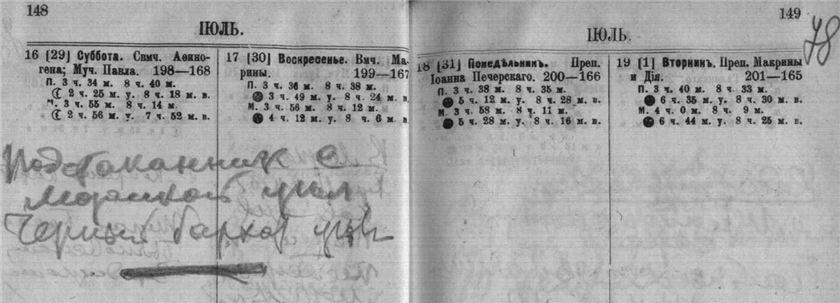 148
ІЮЛЬ.
16 [29] Суббота. Свмч. Аѳино-
гена; Муч. Павла. 198—168
П. 3 ч. 34 м. 8 ч. 40 м.
☾ 2 ч. 25 м. у. 8 ч. 18 м. в.
М. 3 ч. 55 м. 8 ч. 14 м.
☾ 2 ч. 56 м. у. 7 ч. 52 м. в.
17 [30] Воскресенье. Вмч. Ма-
рины. 199—167
П. 3 ч. 36 м. 8 ч. 38 м.
3 ч. 49 м. у. 8 ч. 24 м. в.
М. 3 ч. 56 м. 8 ч. 12 м.
4 ч. 12 м. у. 8 ч. 6 м. в.
Подстаканник с
Черный бархат
149
78
ІЮЛЬ.
18 [31] Понедѣльникъ. Преп.
Іоанна Печерскаго. 200—166
П. 3 ч. 38 м. 8 ч. 35 м.
5 ч. 12 м. у. 8 ч. 28 м. в.
М. 3 ч. 58 м. 8 ч. 11 м.
5 ч. 28 м. у. 8 ч. 16 м. в.
19 [1] Вторникъ. Преп. Макрины
и Дія. 201—165
П. 3 ч. 40 м. 8 ч. 33 м.
6 ч. 35 м. у. 8 ч. 30 м. в.
М. 4 ч. 0 м. 8 ч. 9 м.
6 ч. 44 м. у. 8 ч. 25 м. в.